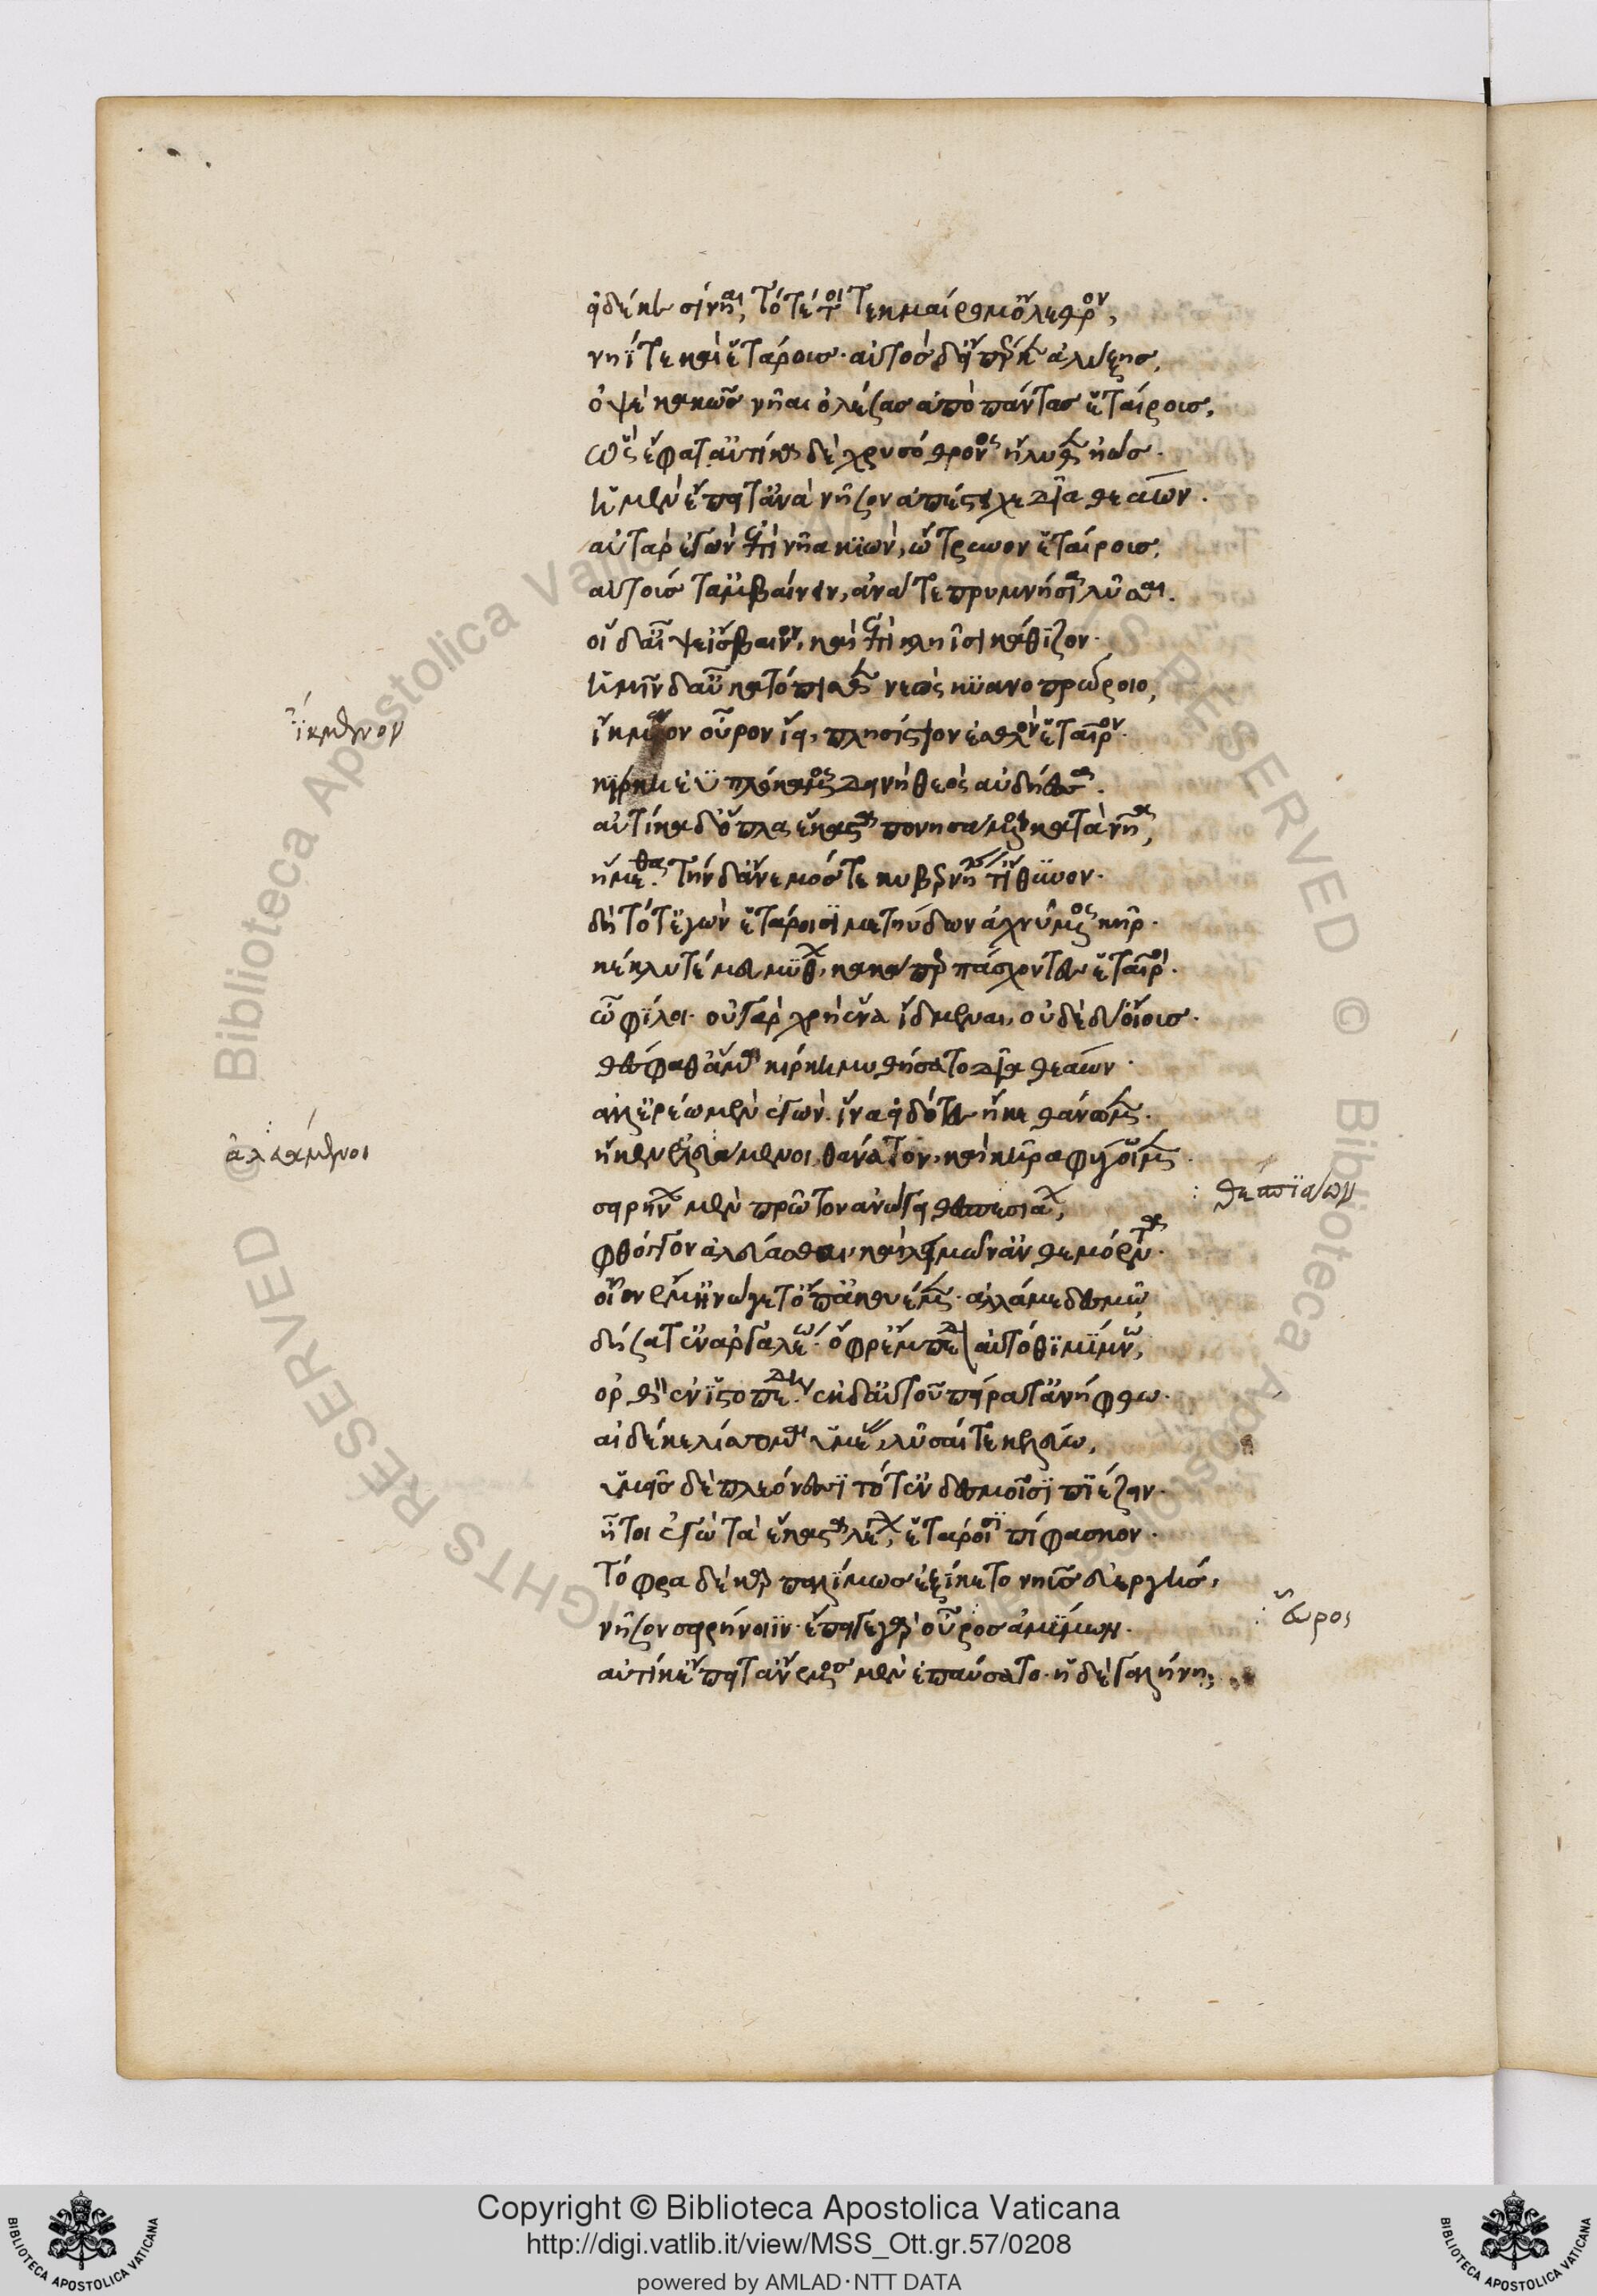 εἰ δέ κε σίνηαι, τότέ τοι τεκμαίρομ' ὄλεθρον,
νηΐ τε καὶ ἑτάροις· αὐτὸς δ' εἴπερ κεν ἀλύξης,
ὀψὲ κακῶς νῆαι ὀλέσας ἀπὸ πάντας ἑταίρους.
ὣς ἔφατ' αὐτίκα δὲ χρυσόθρονος ἤλυθεν ἠώς.
ἡ μὲν ἔπειτ' ἀνὰ νῆσον ἀπέστιχε δῖα θεάων.
αὐτὰρ ἐγὼν ἐπὶ νῆα κιών, ὤτρυνον ἑταίρους,
αὐτούς τ' ἀμβαίνειν, ἀνά τε πρυμνήσια λῦσαι.
οἱ δ' αἶψ' εἴσβαινον, καὶ ἐπὶ κληῖσι κάθιζον·
ἡμῖν δ' αὖ κατόπισθεν νεὸς κυανοπρώροιο,
ἴκμενον οὖρον ἵει, πλησίστιον ἐσθλὸν ἑταῖρον·
κίρκη ἐϋπλόκαμος δεινὴ θεὸς αὐδήεσσα.
αὐτίκα δ' ὅπλα ἕκαστα πονησάμενοι κατὰ νῆα,
ἥμεθα. τὴν δ' ἄνεμός τε κυβερνήτης τ' ἴθυνον·
δὴ τότ' ἐγὼν ἑτάροισι μετηύδων ἀχνύμενος κῆρ·
κέκλυτέ μευ μύθων, κακά περ πάσχοντες ἑταῖροι.
ὦ φίλοι· οὐ γὰρ χρὴ ἕνα ἴδμεναι, οὐδὲ δύ' οἴους·
θέσφαθ' ἅ μοι κίρκη μυθήσατο δῖα θεάων·
ἀλλ' ἐρέω μὲν ἐγών. ἵνα εἰδότες ἤ κε θάνωμεν.
ἤ κεν ἀλευάμενοι, θάνατον, καὶ κῆρα φύγοιμεν.
σειρήνων μὲν πρῶτον ἀνώγει θεσπεσιάων,
φθόγγον ἀλεύασθαι καὶ λειμῶν' ἀνθεμόεντα·
οἶον ἔμ' ἠνώγει τ' ὄπ' ἀκουέμεν· ἀλλά με δεσμῷ
δήσατ' ἐν ἀργαλέῳ· ὄφρ' ἔμπεδον αὐτόθι μίμνω,
ὀρθὸν ἐν ἱστοπέδῃ. ἐκ δ' αὐτοῦ πείρατ' ἀνήφθω·
αἰ δέ κε λίσσωμαι ὑμέας, λῦσαί τε κελεύω,
ὑμεῖς δὲ πλεόνεσσι τότ' ἐν δεσμοῖσι πιέζειν·
ἤτοι ἐγὼ τὰ ἕκαστα λέγων, ἑτάροισι πίφασκον·
τόφρα δὲ καρπαλίμως ἐξίκετο νηῦς εὐεργής,
νῆσον σειρήνοιϊν· ἔπειγε γὰρ οὖρος ἀμύμων.
αὐτίκ' ἔπειτ' ἄνεμος μὲν ἐπαύσατο· ἡ δὲ γαλήνη,
ἴκμενον
ἀλευάμενοι
θεσπεσιάων
οὖρος
Copyright © Biblioteca Apostolica Vaticana
http://digi.vatlib.it/view/MSS_Ott.gr.57/0208
powered by AMLAD·NTT DATA